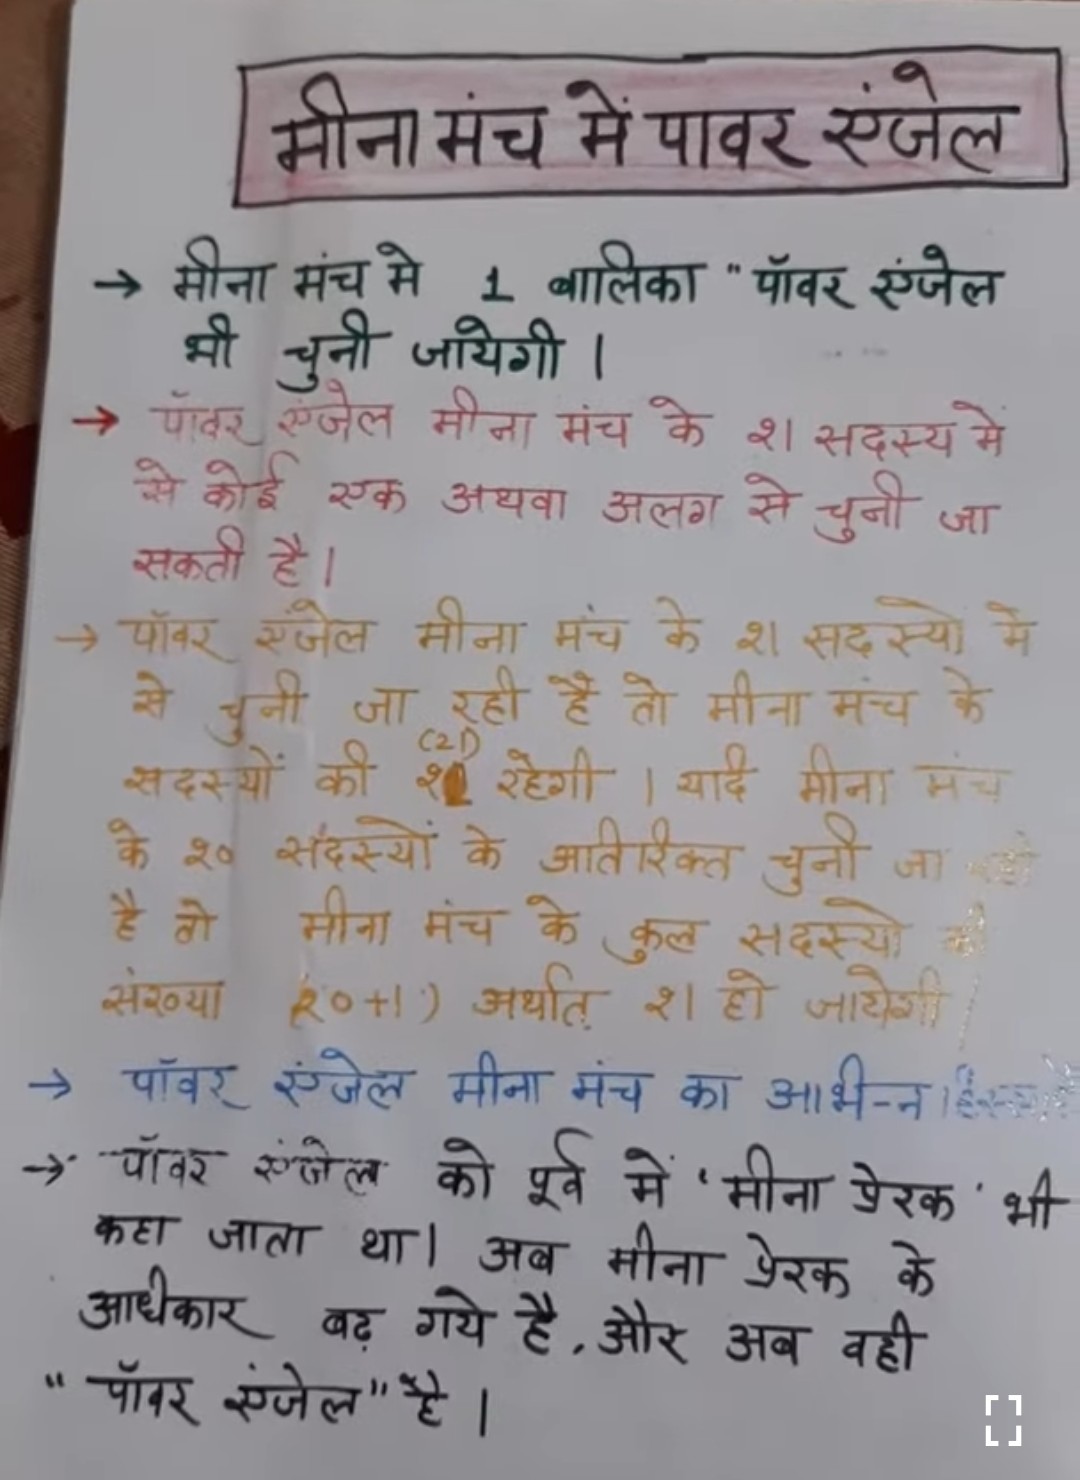 मीना मंच में पावर एंजेल
→ मीना मंच मे 1 बालिका "पॉवर एंजेल
भी चुनी जायेगी ।
→ पॉवर एंजेल मीना मंच के २१ सदस्य में
से कोई एक अथवा अलग से चुनी जा
सकती है ।
→ पॉवर एंजेल मीना मंच के २१ सदस्यो मे
से चुनी जा रही है तो मीना मंच के
(21)
सदस्यों की रहेगी । यदि मीना मंच
के २० सदस्यों के अतिरिक्त चुनी जा
है तो मीना मंच के कुल सदस्यो की
संख्या (२०+१) अर्थात् २१ हो जायेगी ।
→ पॉवर एंजेल मीना मंच का अभिन्न
→ पॉवर एंजेल को पूर्व में 'मीना प्रेरक' भी
कहा जाता था। अब मीना प्रेरक के
अधिकार बढ़ गये है, और अब वही
"पॉवर एंजेल" है ।